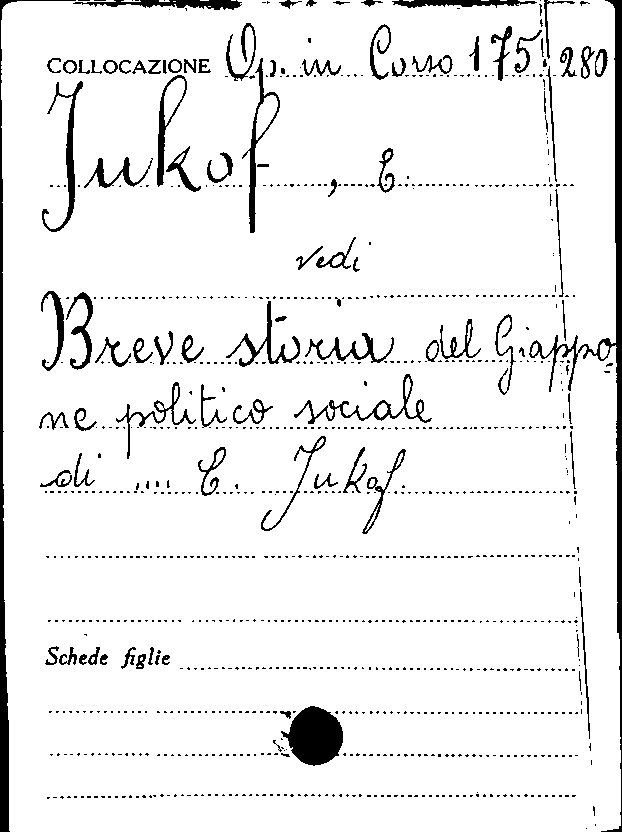 COLLOCAZIONE Op. in Corso 175 280
Jukof, E.
vedi
Breve storia del Giappo=
ne politico sociale
di .... E. Jukof.
Schede figlie